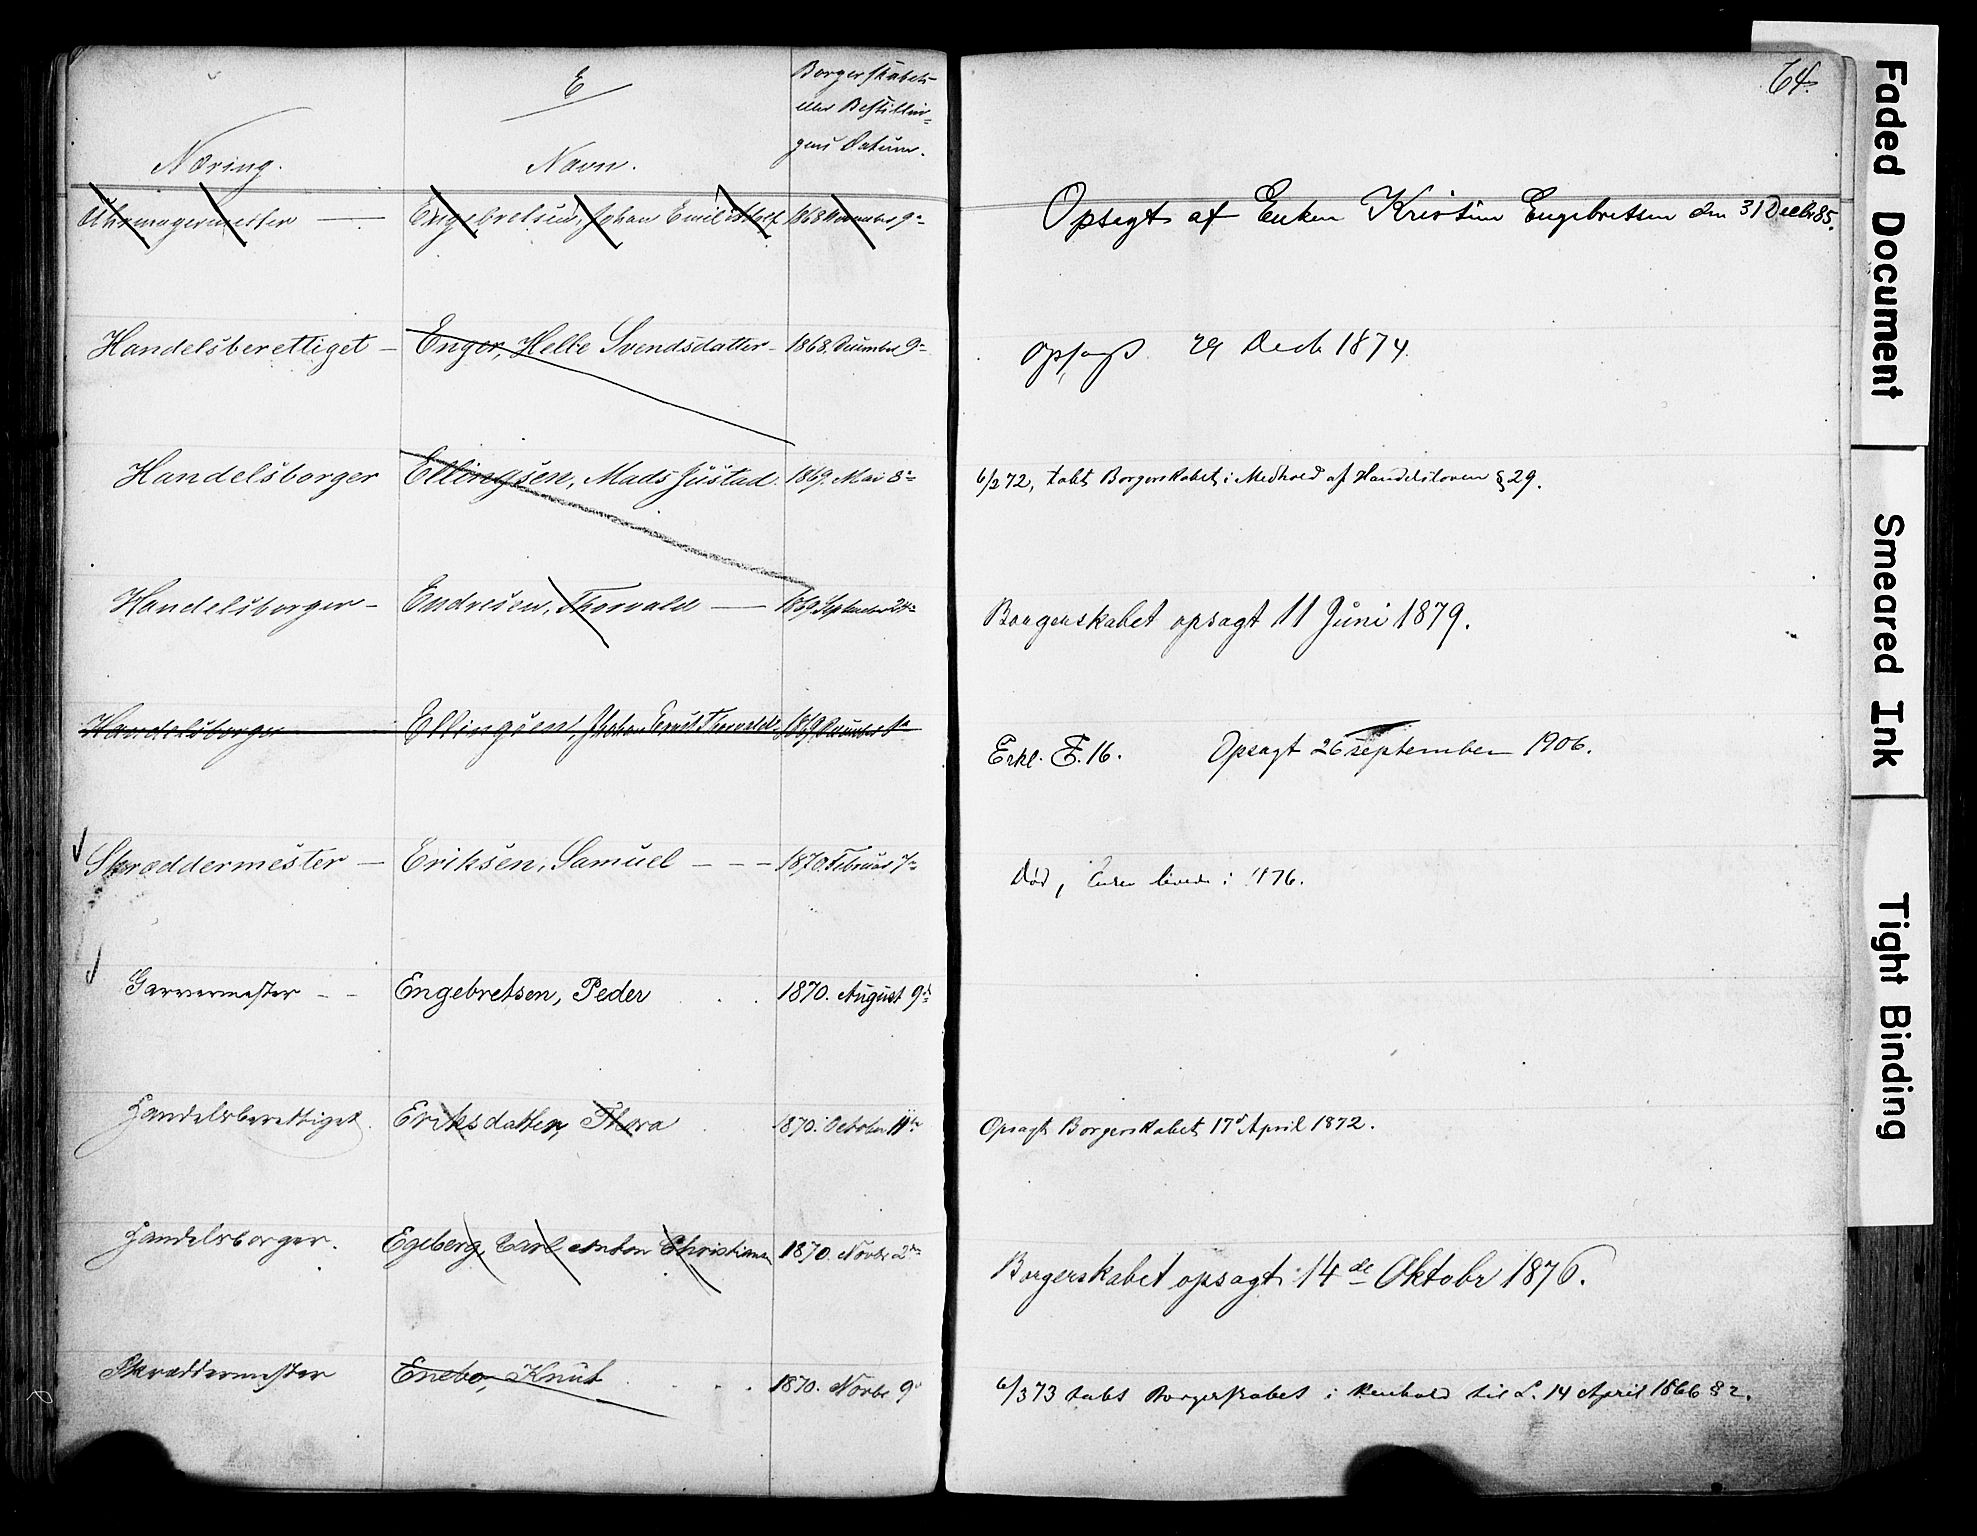 E
Borgerskabets
eller Bestillin-
gens Datum.
Næring.
Navn.
64.
Uhrmagermester — Engebretsen, Johan Emil Adolf 1868 November 9de Opsagt af Enken Kristine Engebretsen den 31 Decbr 85.
Handelsberettiget — Enger, Helle Svendsdatter - 1868. December 9de opsagt 29 Decb 1874.
Handelsborger Ellingsen, Mads Justad. 1869. Mai 8de 6/2 72, tabt Borgerskabet i Medhold af Handelsloven § 29.
Handelsborger - Endresen, Thorvald — 1869 September 24de Borgerskabet opsagt 11 Juni 1879.
Handelsborger Ellingsen, Johan Ernst Thorvald 1869 December 1ste
Erkl. F. 16. Opsagt 26 september 1906.
Skræddermester — Eriksen, Samuel - - - 1870 Februar 7de Død, Enken levede i 1876.
Garvermester - - Engebretsen, Peder 1870. August 9de
Handelsberettiget. Eriksdatter, Thora 1870. October 11te Opsagt Borgerskabet 17de April 1872.
Handelsborger. Egeberg, Carl Anton Christian 1870. Novbr 2den Borgerskabet opsagt 14de Oktobr 1876.
Skræddermester Enebo, Knut 1870. Novbr 9de 6/3 73 tabt Borgerskabet i Henhold til L. 14 April 1866 § 2.
Faded Document
Smeared Ink
Tight Binding